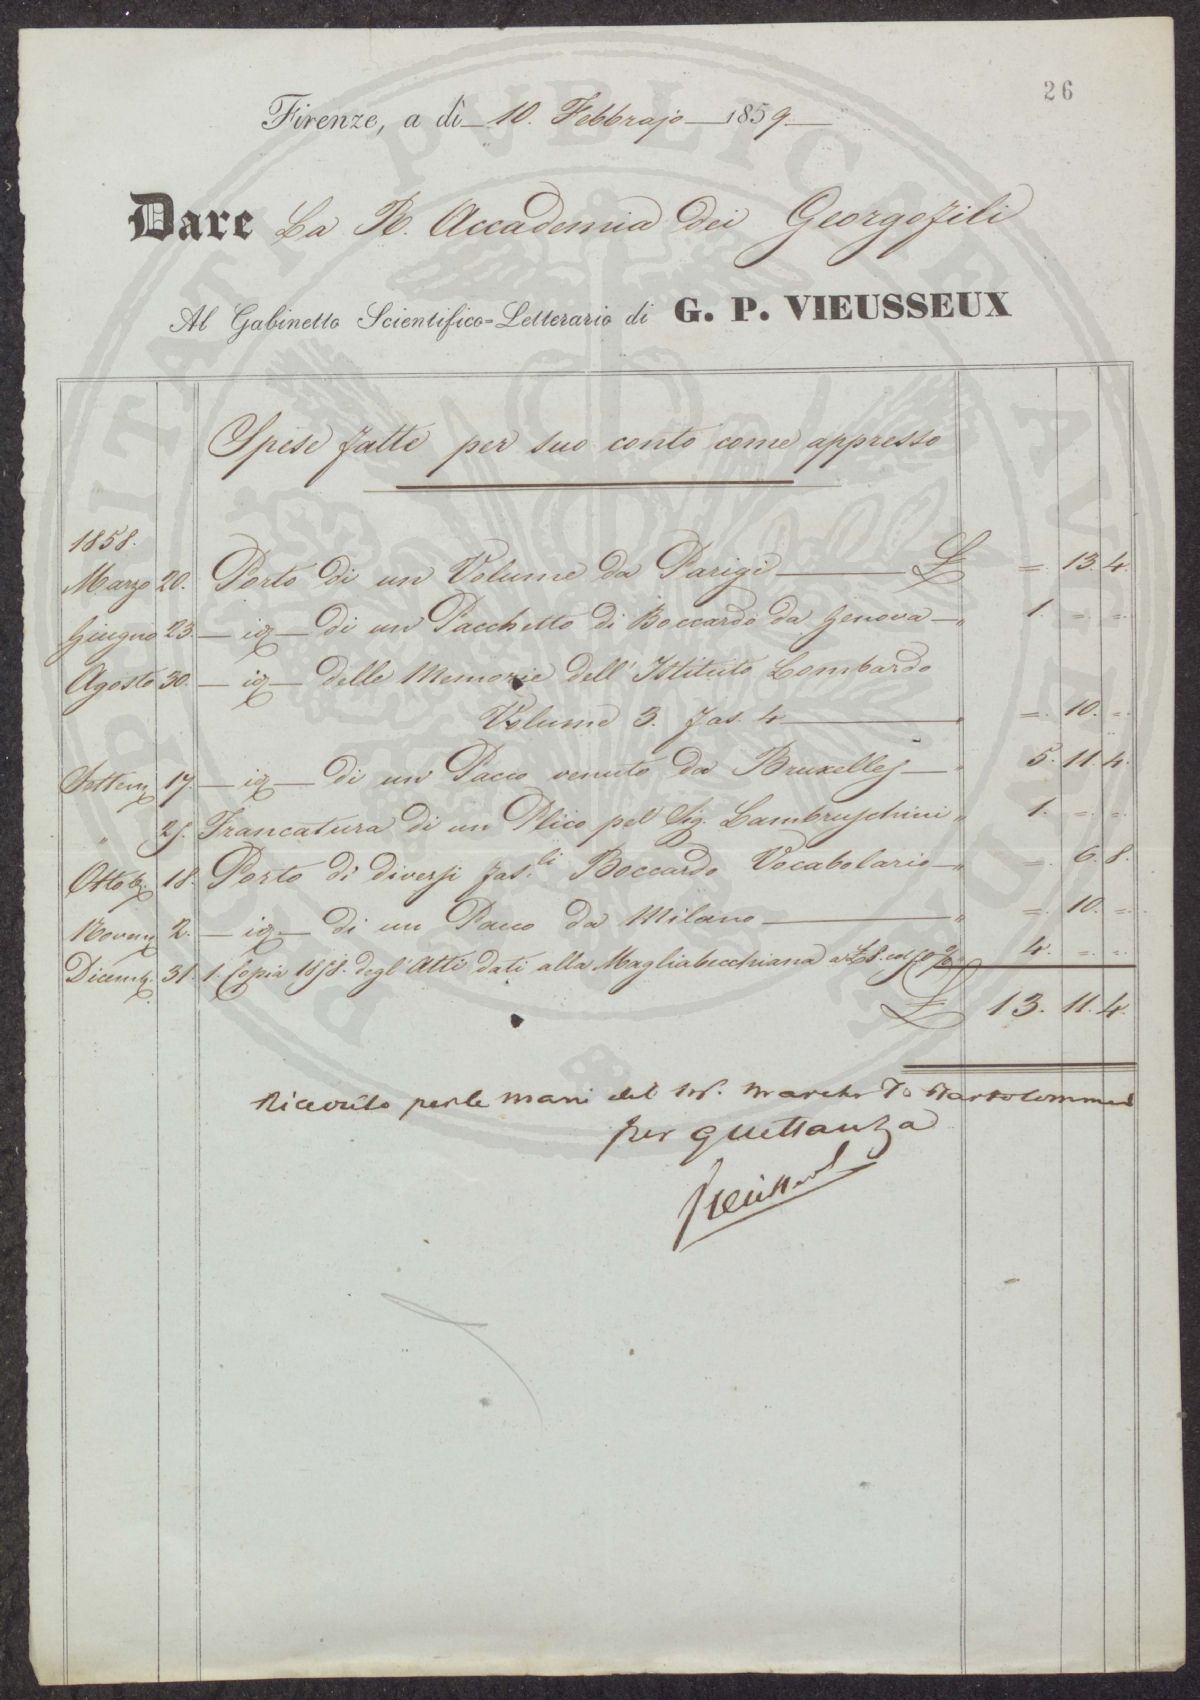 26
Firenze, a dì 10. Febbrajo 1859
Dare La R. Accademia dei Georgofili
Al Gabinetto Scientifico=Letterario di G. P. VIEUSSEUX
Spese fatte per suo conto come appresso
1858.
Marzo 20. Porto di un Volume da Parigi £ =. 13. 4.
Giugno 23. — id — di un Pacchetto di Boccardo da Genova — „ 1. = =
Agosto 30. — id — delle Memorie dell' Istituto Lombardo
Volume 3. fas. 4. „ =. 10. =
Settem 17. — id — di un Pacco venuto da Bruxelles — „ 5. 11. 4.
„ 25. Francatura di un Plico pel Sig. Lambruschini „ 1. = =
Ottob. 18. Porto di diversi fas.li Boccardo Vocabolario — „ =. 6. 8.
Novem 2. — id — di un Pacco da Milano — „ =. 10. =
Dicemb. 31. 1. Copia 1858. degl' Atti dati alla Magliabecchiana a £ 8. col 50 % „ 4. = =
£ 13. 11. 4.
Ricevuto per le mani del March Bartolommei
per quettanza
Vieusseux